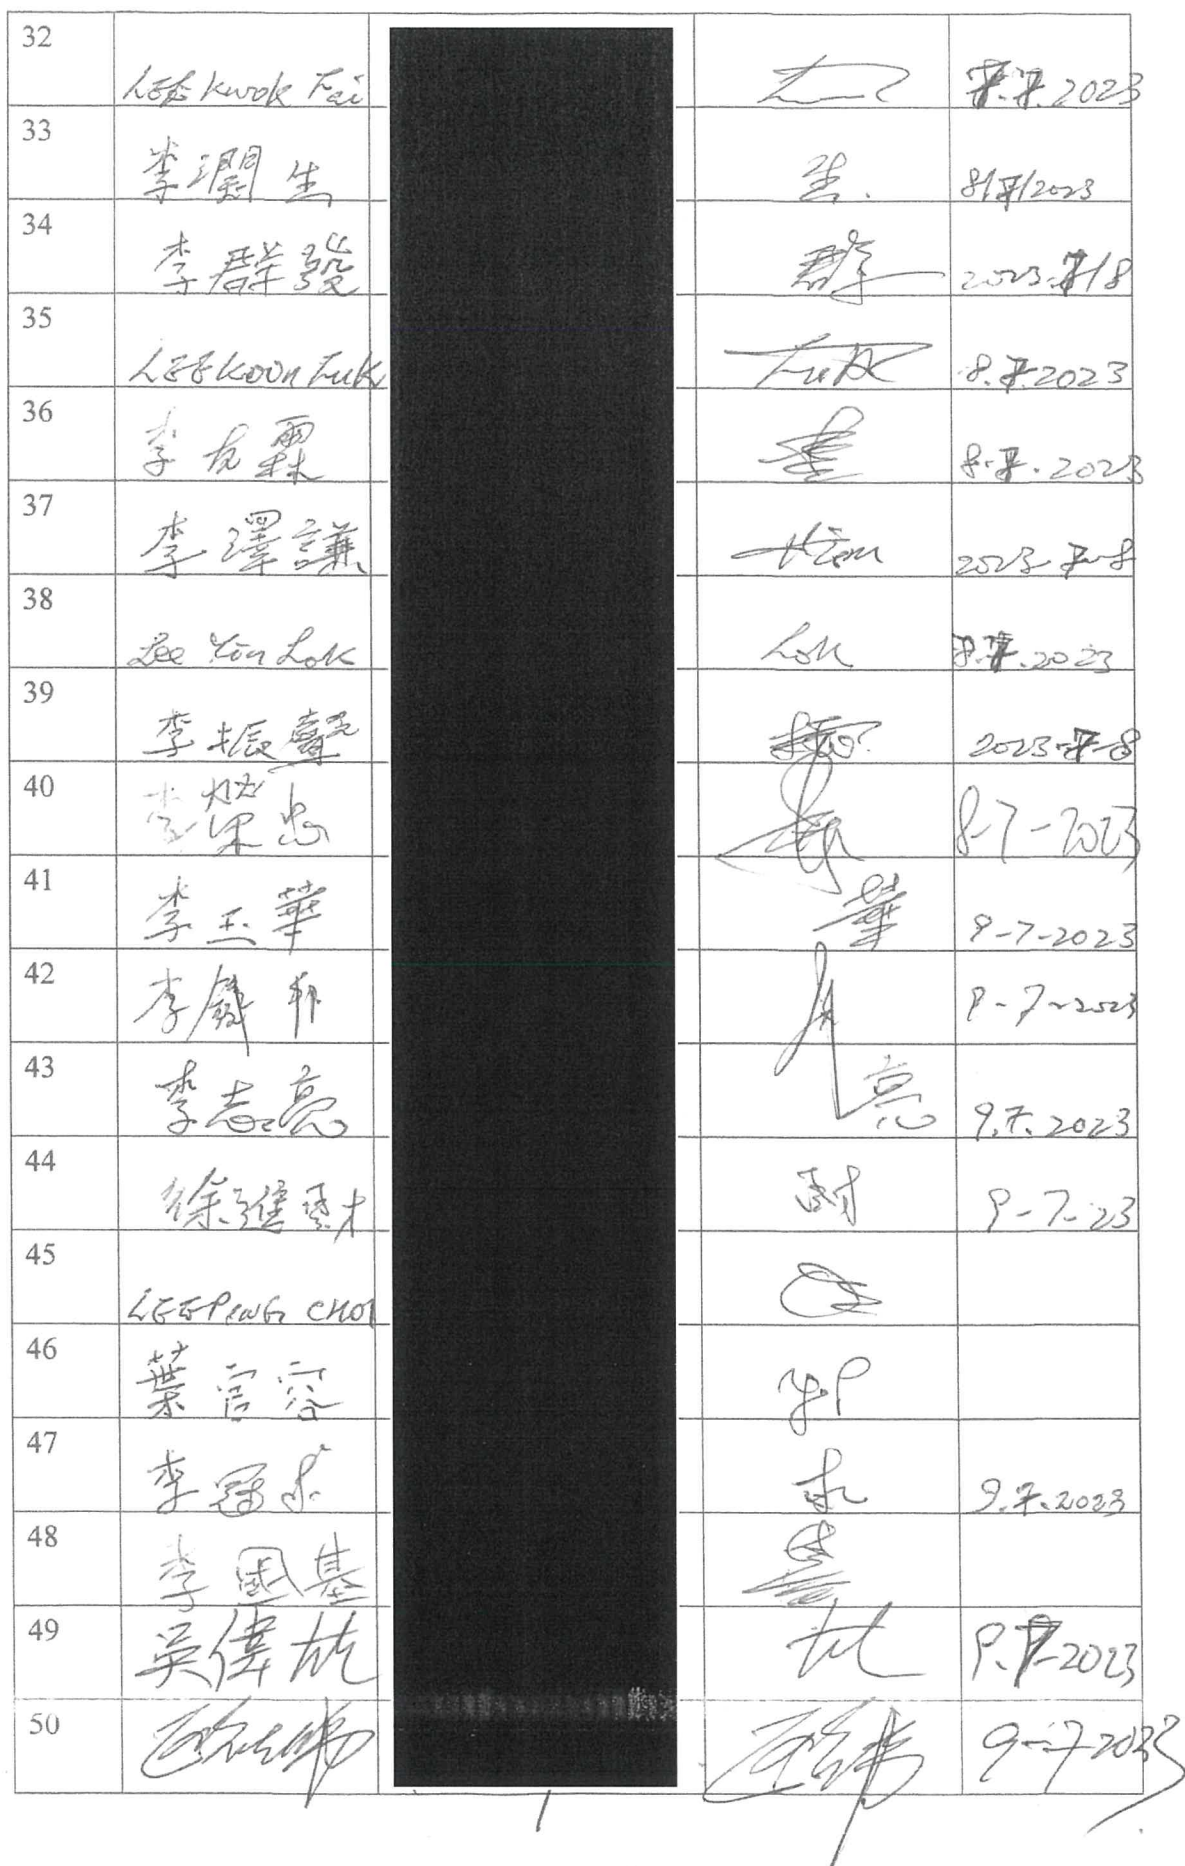 32 LEE Kwok Fai 7.7.2023
33 李潤生 生. 8/7/2023
34 李群發 群 2023-7/8
35 LEE KOON FUK FUK 8.7.2023
36 李 霖 8.7.2023
37 李澤謙 Him 2023-7-8
38 Lee Yin Lok Lok 8.7.2023
39 李振聲 2023-7-8
40 李燦忠 8-7-2023
41 李玉華 華 9-7-2023
42 李 9-7-2023
43 李志亮 亮 9.7.2023
44 徐進財 財 9-7-23
45 LEE PING CHOI
46 葉官容
47 李冠求 求 9.7.2023
48 李國基
49 吳偉 9.7-2023
50 9-7-2023